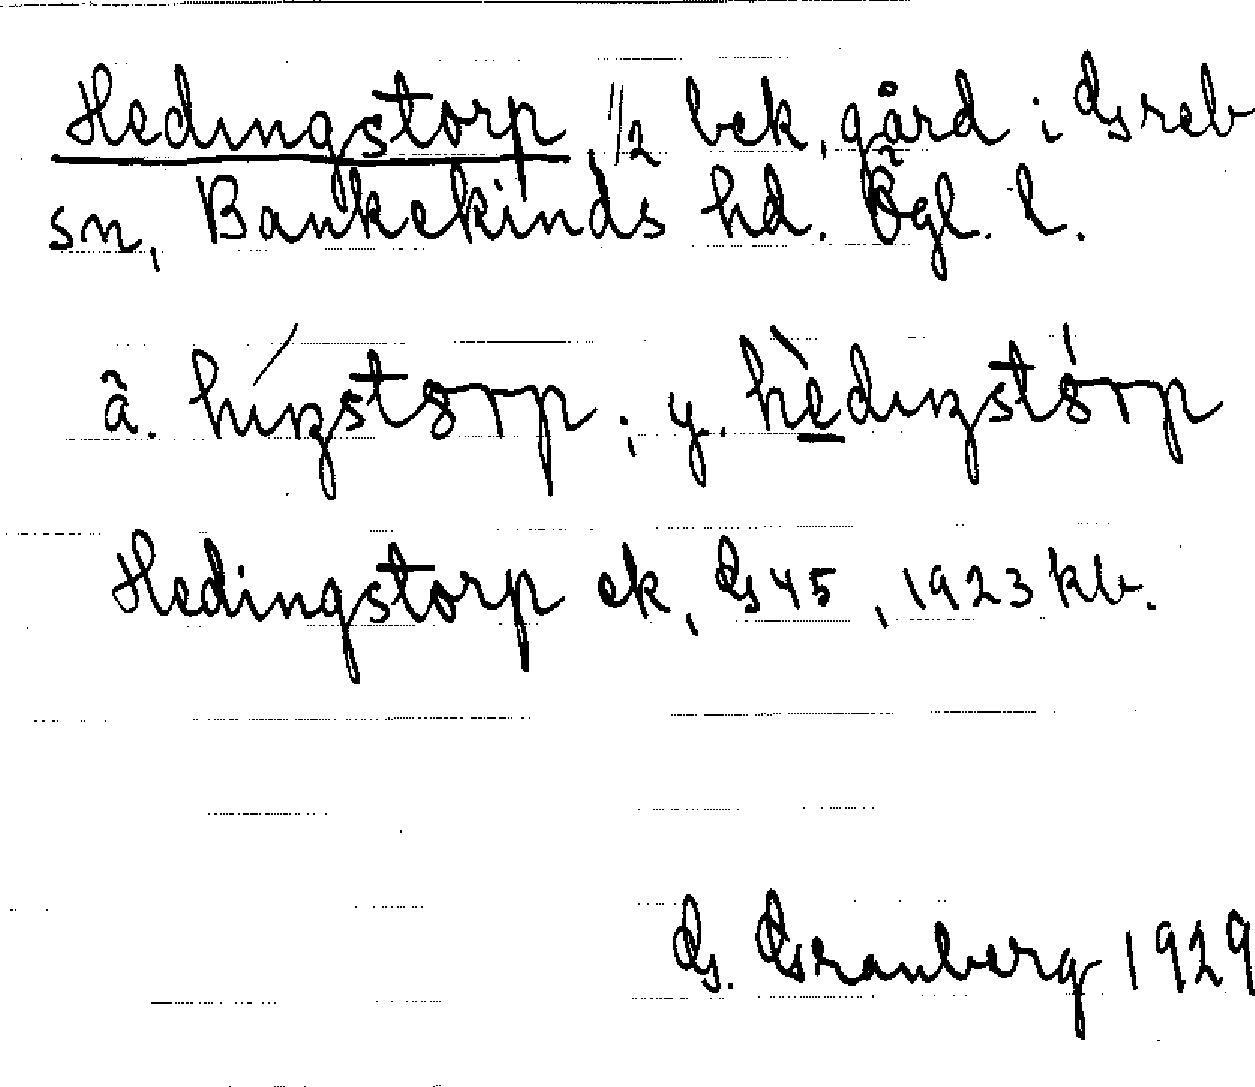 Hedingstorp, 1/2 bek. gård i Greb
sn, Bankekinds hd. Ögl. l.
ä. híŋstɷrp ; y. hèdıŋstɷ́rp
Hedingstorp ek, G 45, 1923 kb.
G. Granberg 1929